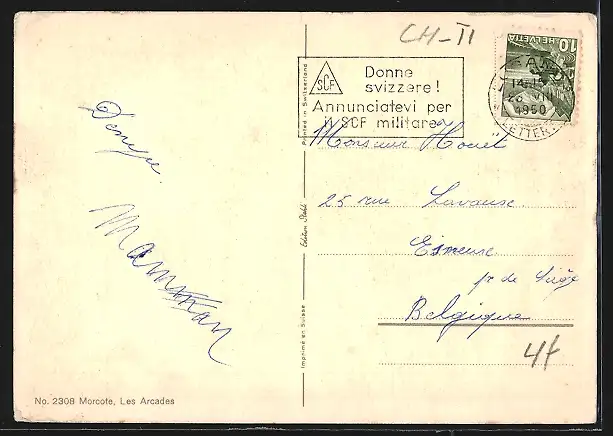 CH-TI
HELVETIA
10
SCF
Donne
svizzere!
Annunciatevi per
il SCF militare
1950
LETTER
Printed in Switzerland
Monsieur Houet
25 rue Lavause
Esneux
pr de Liège
Belgique
Edition Stehli
Imprimé en Suisse
Denyse
Maman
44
No. 2308 Morcote, Les Arcades